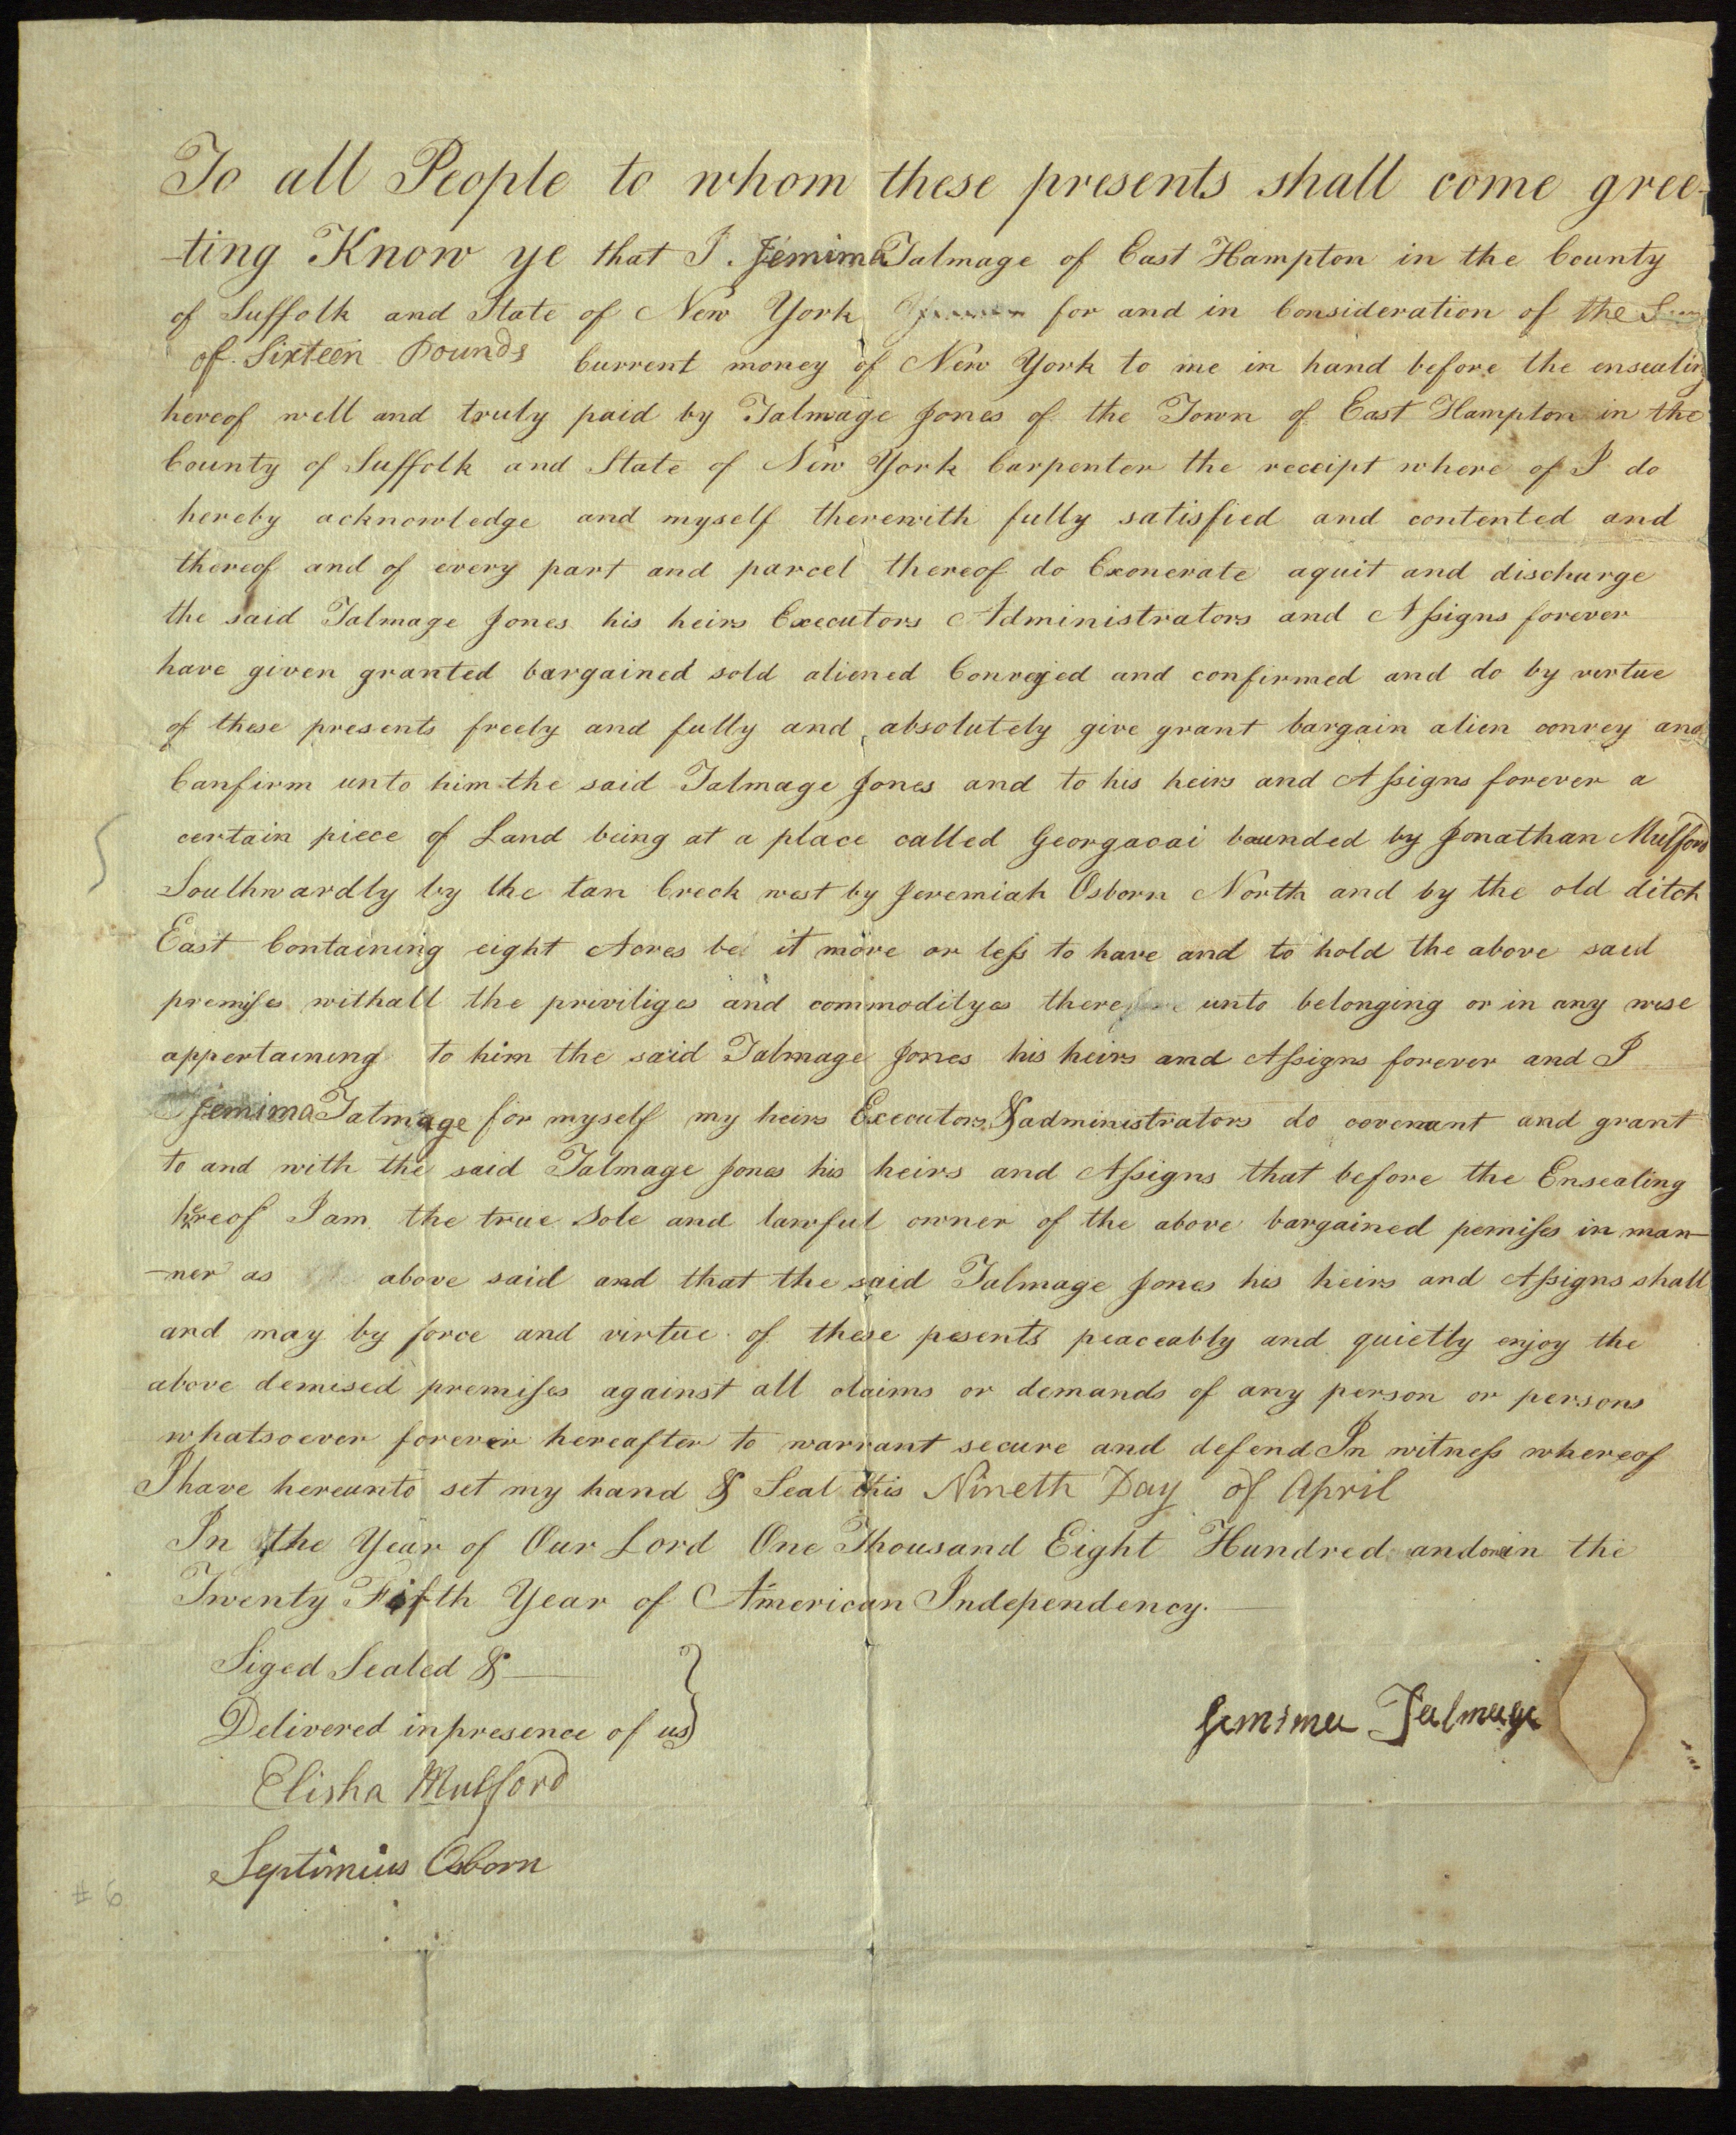 To all People to whom these presents shall come gree-
-ting Know ye that I Jemima Talmage of East Hampton in the County
of Suffolk and State of New York for and in Consideration of the
of Sixteen Pounds Current money of New York to me in hand before the ensealing
hereof well and truly paid by Talmage Jones of the Town of East Hampton in the
County of Suffolk and State of New York Carpenter the receipt where of I do
hereby acknowledge and myself therewith fully satisfied and contented and
thereof and of every part and parcel thereof do Exonerate aquit and discharge
the said Talmage Jones his heirs Executors Administrators and Assigns forever
have given granted bargained sold aliened Conveyed and confirmed and do by virtue
of these presents freely and fully and absolutely give grant bargain alien convey and
Canfirm unto him the said Talmage Jones and to his heirs and Assigns forever a
certain piece of Land being at a place called Georgacai baunded by Jonathan Mulford
Southwardly by the tan Creek west by Jeremiah Osborn North and by the old ditch
East Containing eight Acres be it more or less to have and to hold the above said
premises withall the priviliges and commodityes there unto belonging or in any wise
appertaining to him the said Talmage Jones his heirs and Assigns forever and I
Jemima Talmage for myself my heirs Executors & administrators do covenant and grant
to and with the said Talmage Jones his heirs and Assigns that before the Ensealing
hereof I am the true Sole and lawful owner of the above bargained pemises in man-
-ner as above said and that the said Talmage Jones his heirs and Assigns shall
and may by force and virtue of these pesents peaceably and quietly enjoy the
above demised premises against all claims or demands of any person or persons
whatsoever forever hereafter to warrant secure and defend In witness whereof
I have hereunto set my hand & Seal this Nineth Day of April
In the Year of Our Lord One Thousand Eight Hundred and in the
Twenty Fifth Year of American Independency.
Siged Sealed &
Delivered in presence of us
Jemima Talmage
Elisha Mulford
Septimius Osborn
# 6